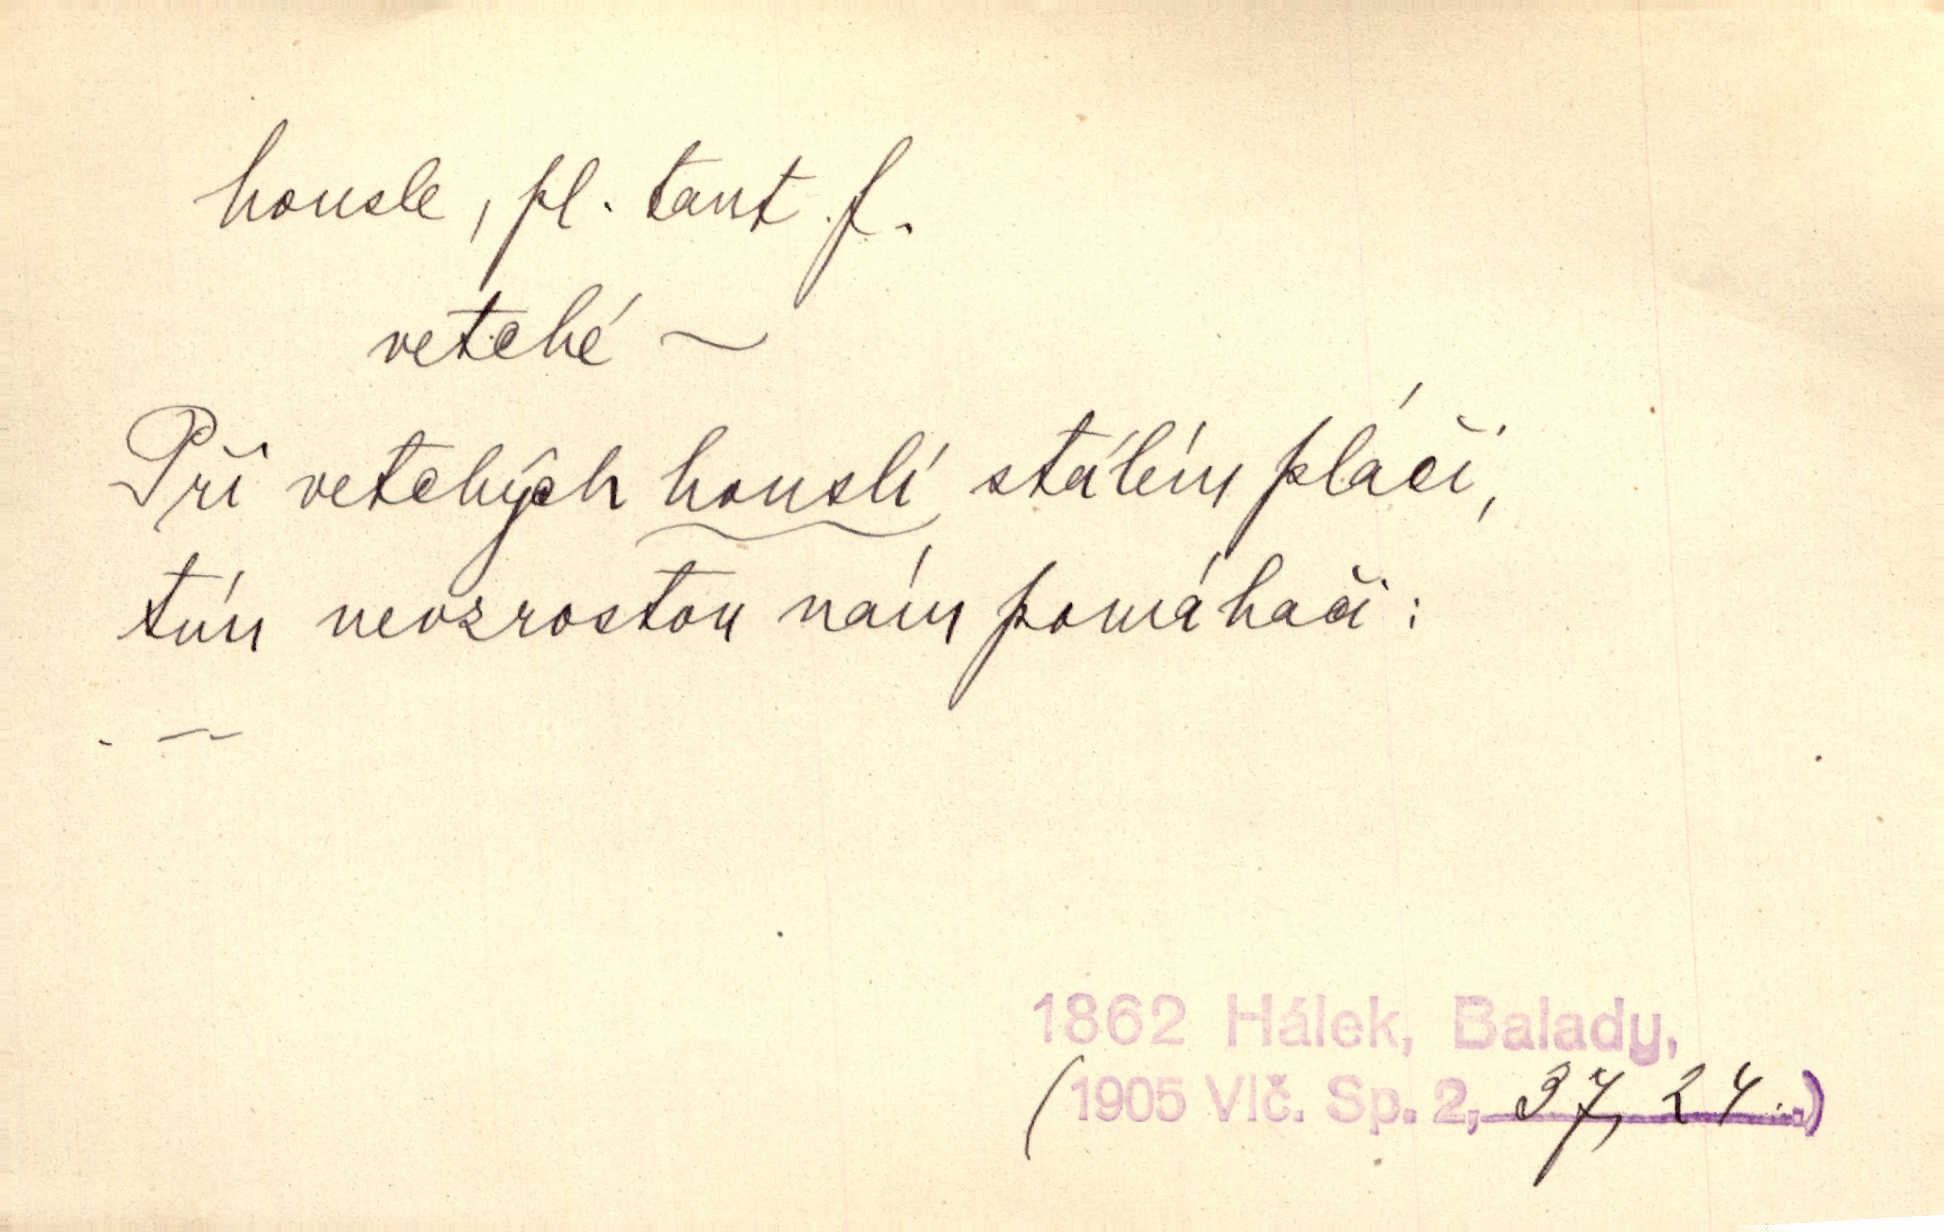 housle, pl. tant. f.
vetché ~
Při vetchých houslí stálém pláči,
tím nevzrostou nám pomáhači:
. —
1862 Hálek, Balady,
(1905 Vlč. Sp. 2, 37, 24.)